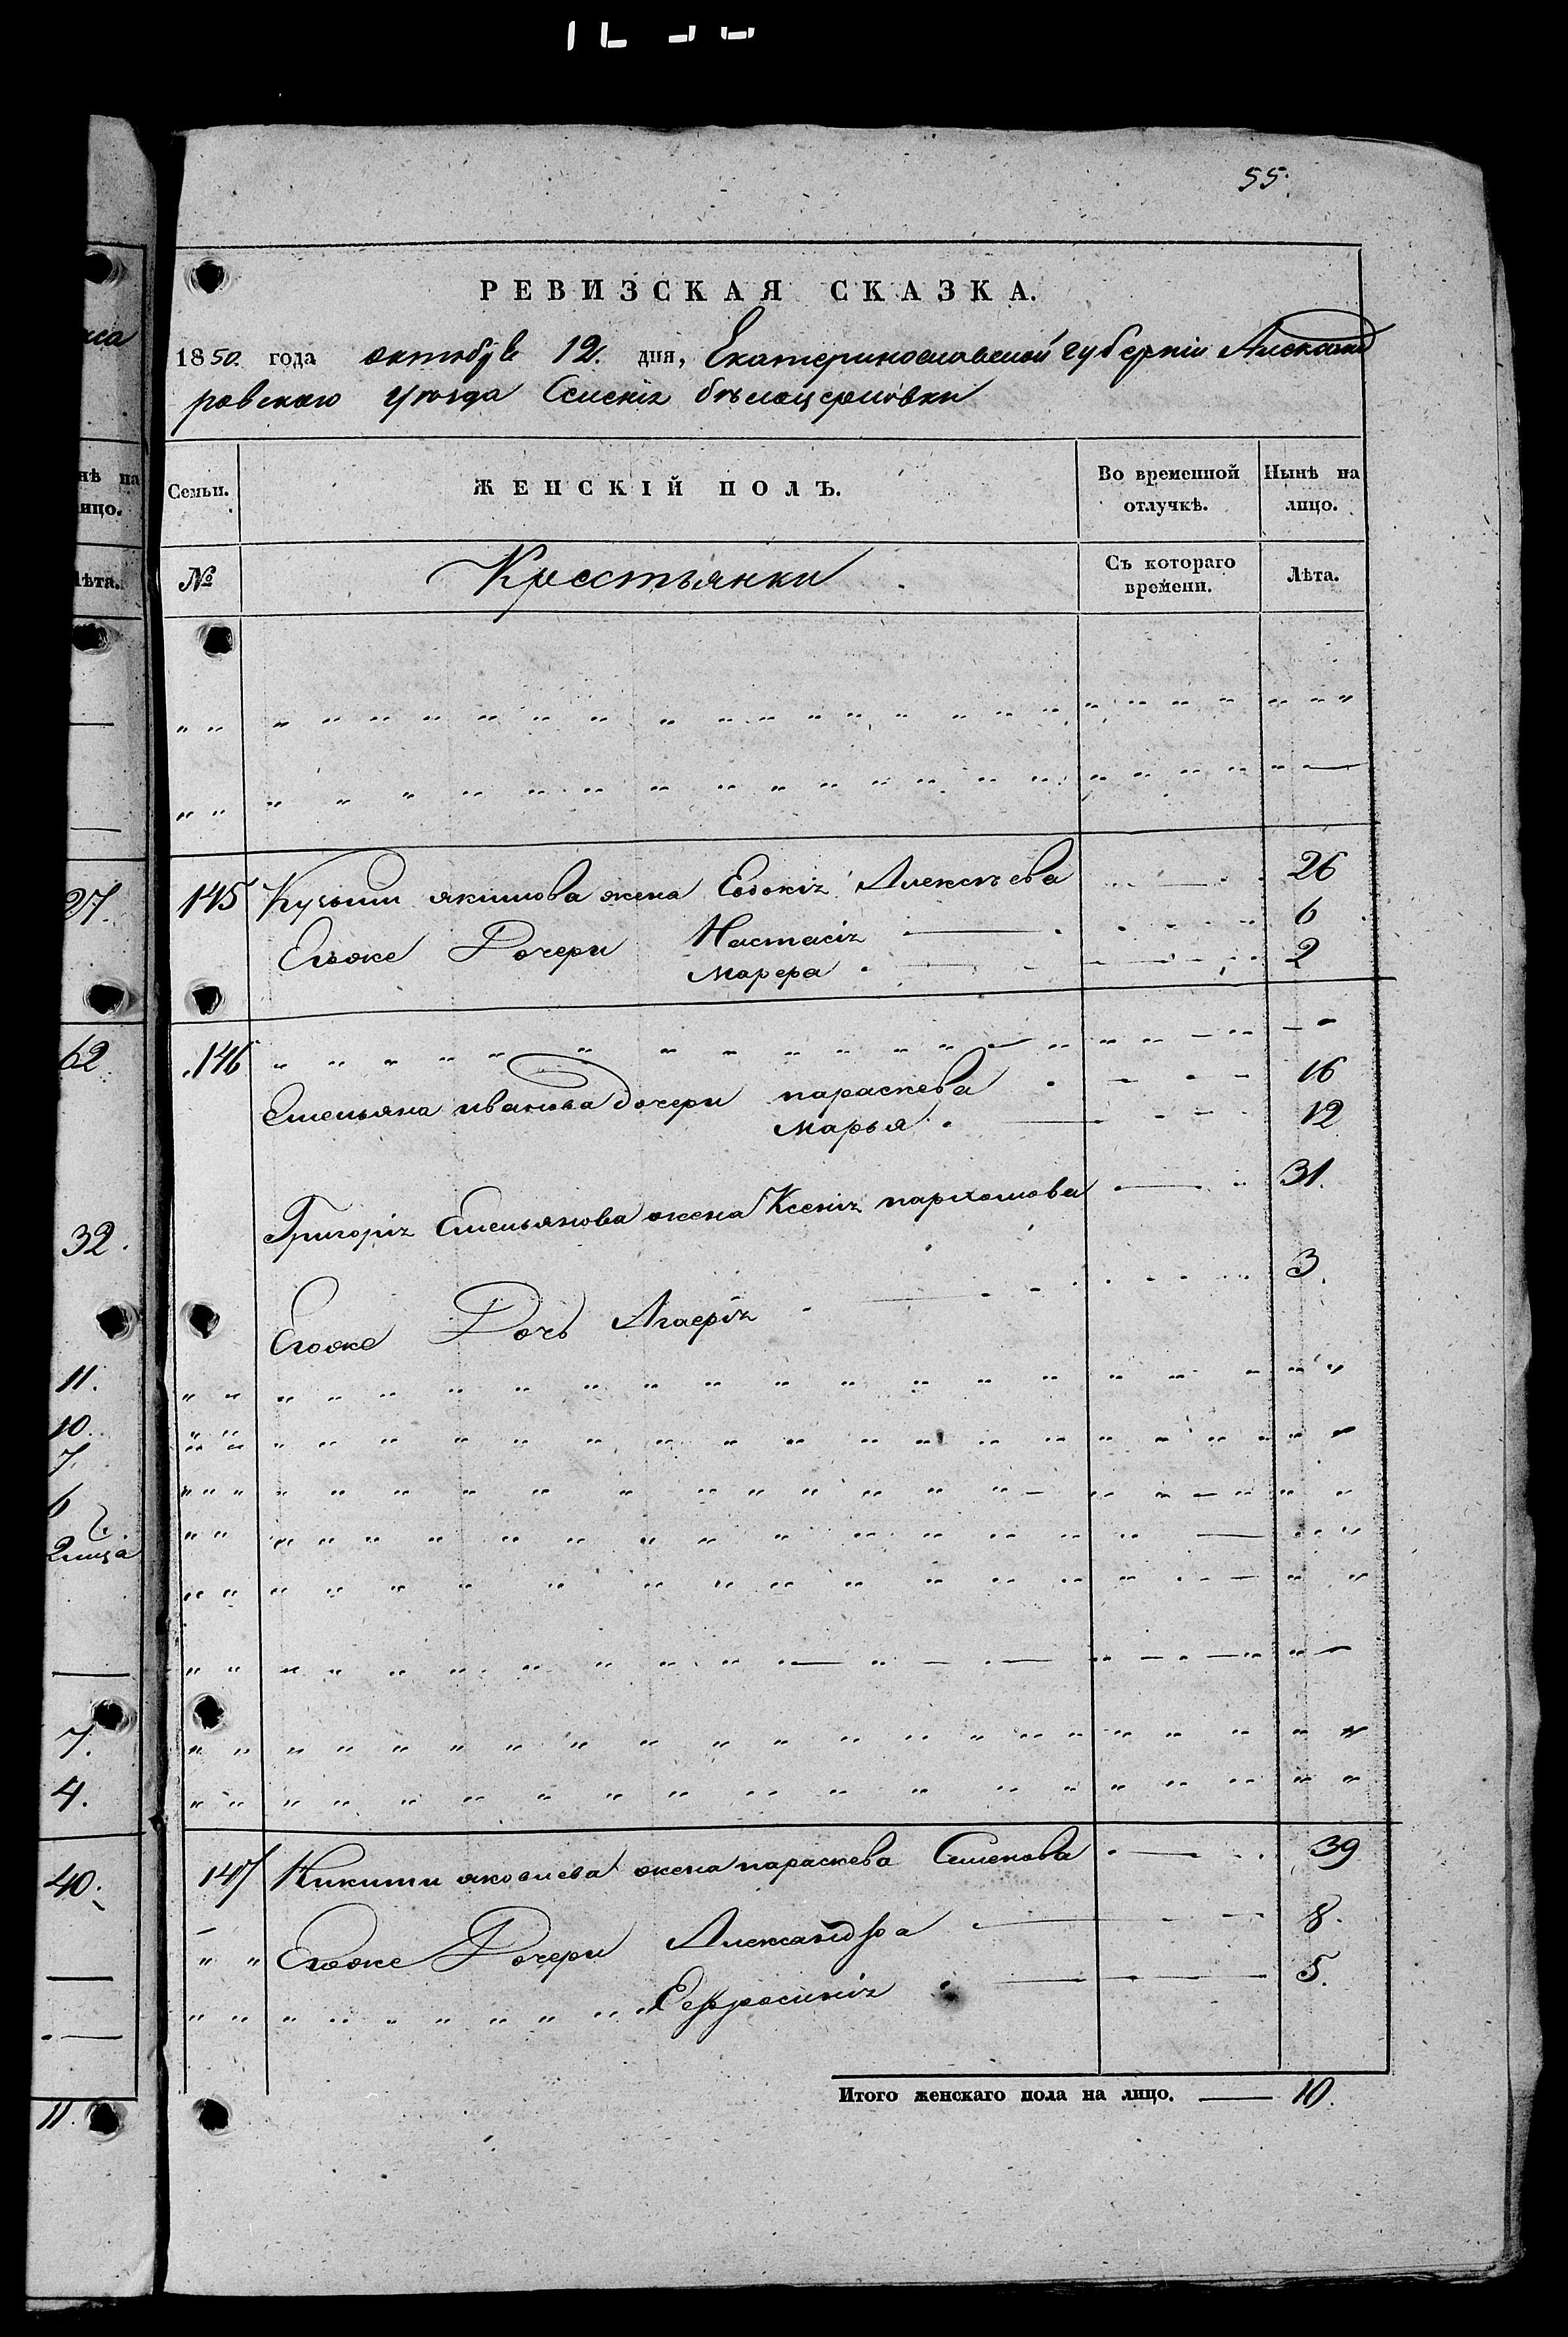 55.
РЕВИЗСКАЯ СКАЗКА.
1850. года октября 12. дня, Екатеринославской губерніи Александ
ровскаго уезда Селенія белоцерковки
Семьи. ЖЕНСКІЙ ПОЛЪ. Во временной отлучкѣ. Нынѣ на лицо.
№ Крестьянки Съ котораго времени. Лѣта.
145 Кузьми якимова жена Евдокія Алексѣева 26
Егоже Дочери Настасія 6
Марфра 2
146
Емельяна иванова дочери параскева 16
Марья 12
Григорія Емельянова жена Ксенія пархомова 31.
Егоже Дочь Агафія 3.
147 Никити яковлева жена параскева Семенова 39
Егоже Дочери Александра 8.
Ефросинія 5.
Итого женскаго пола на лицо. 10.
нѣ на
ицо.
лѣта.
27.
62
32.
11.
10.
7
6
7.
4.
40.
11.